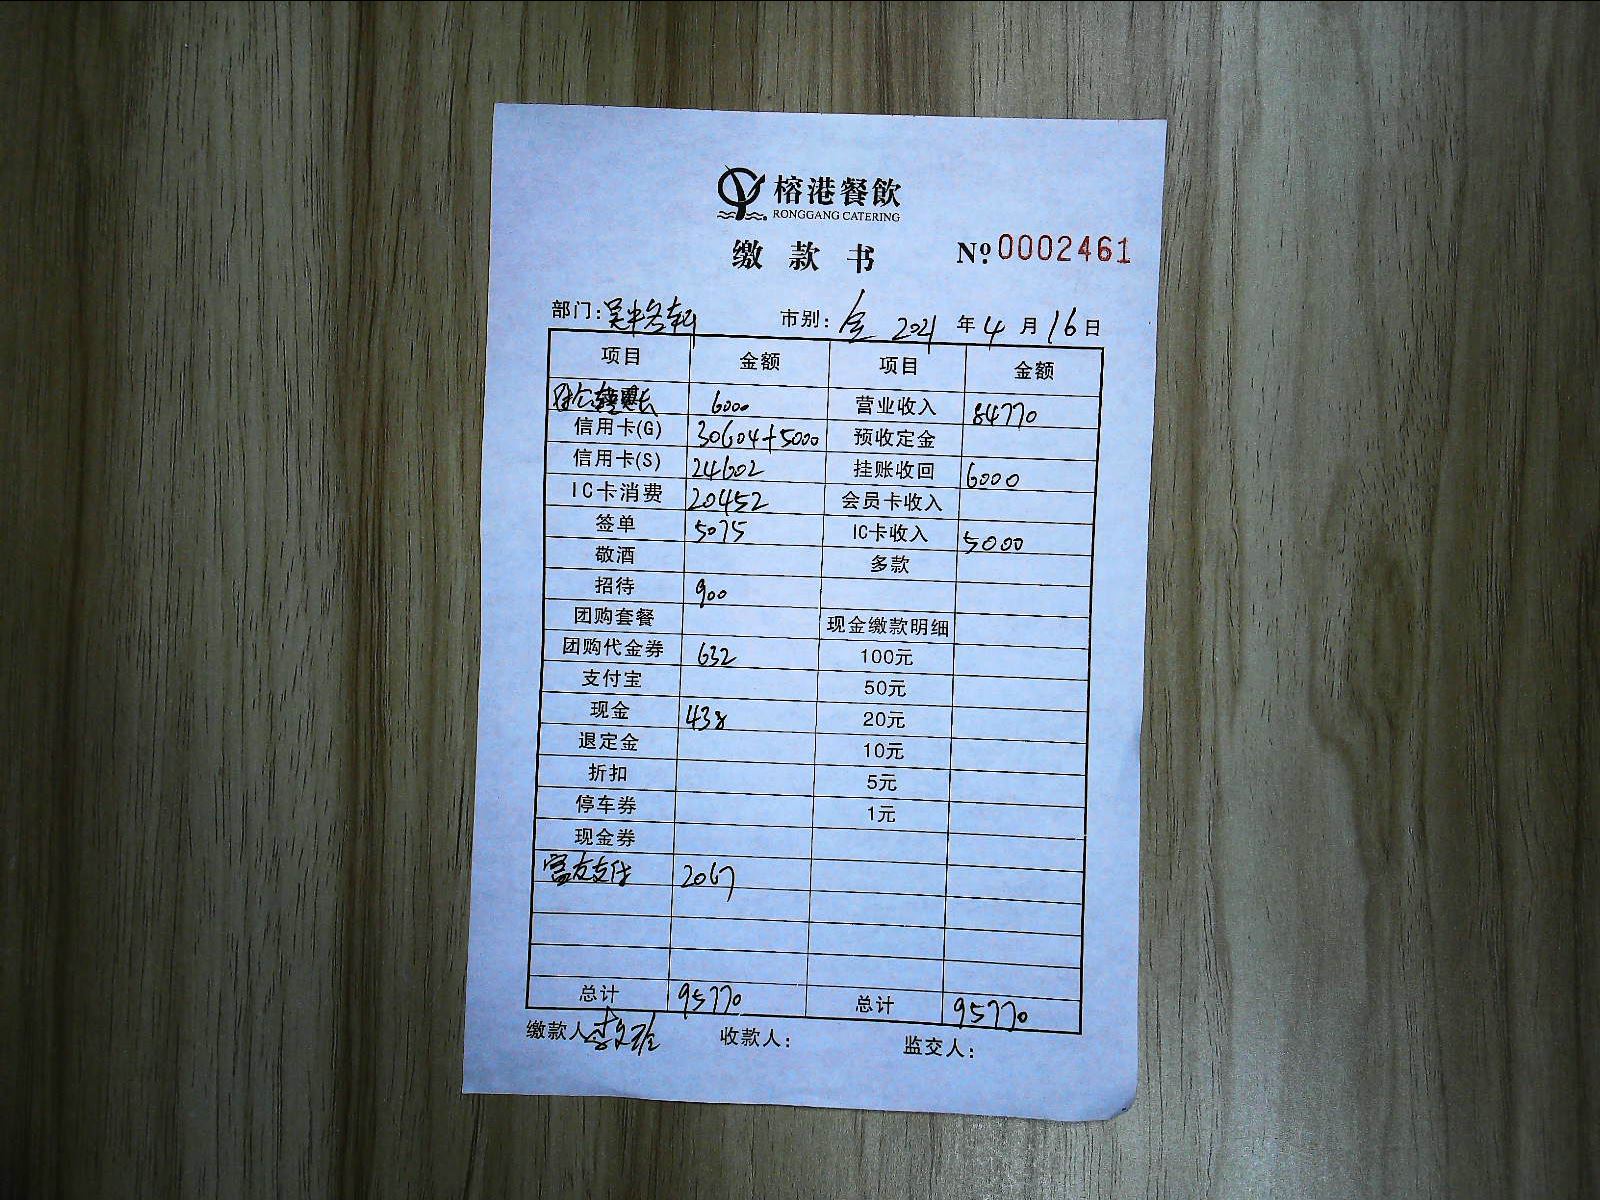 榕港餐飲
RONGGANG CATERING
缴款书 Nº 0002461
部门: 吴中 市别: 全 2021 年 4 月 16 日
项目 金额 项目 金额
对公 6000 营业收入 84770
信用卡(G) 30604+5000 预收定金
信用卡(S) 24602 挂账收回 6000
IC卡消费 20452 会员卡收入
签单 5075 IC卡收入 5000
敬酒 多款
招待 900
团购套餐 现金缴款明细
团购代金券 632 100元
支付宝 50元
现金 438 20元
退定金 10元
折扣 5元
停车券 1元
现金券
富友支付 2067
总计 95770 总计 95770
缴款人 李文 收款人: 监交人: